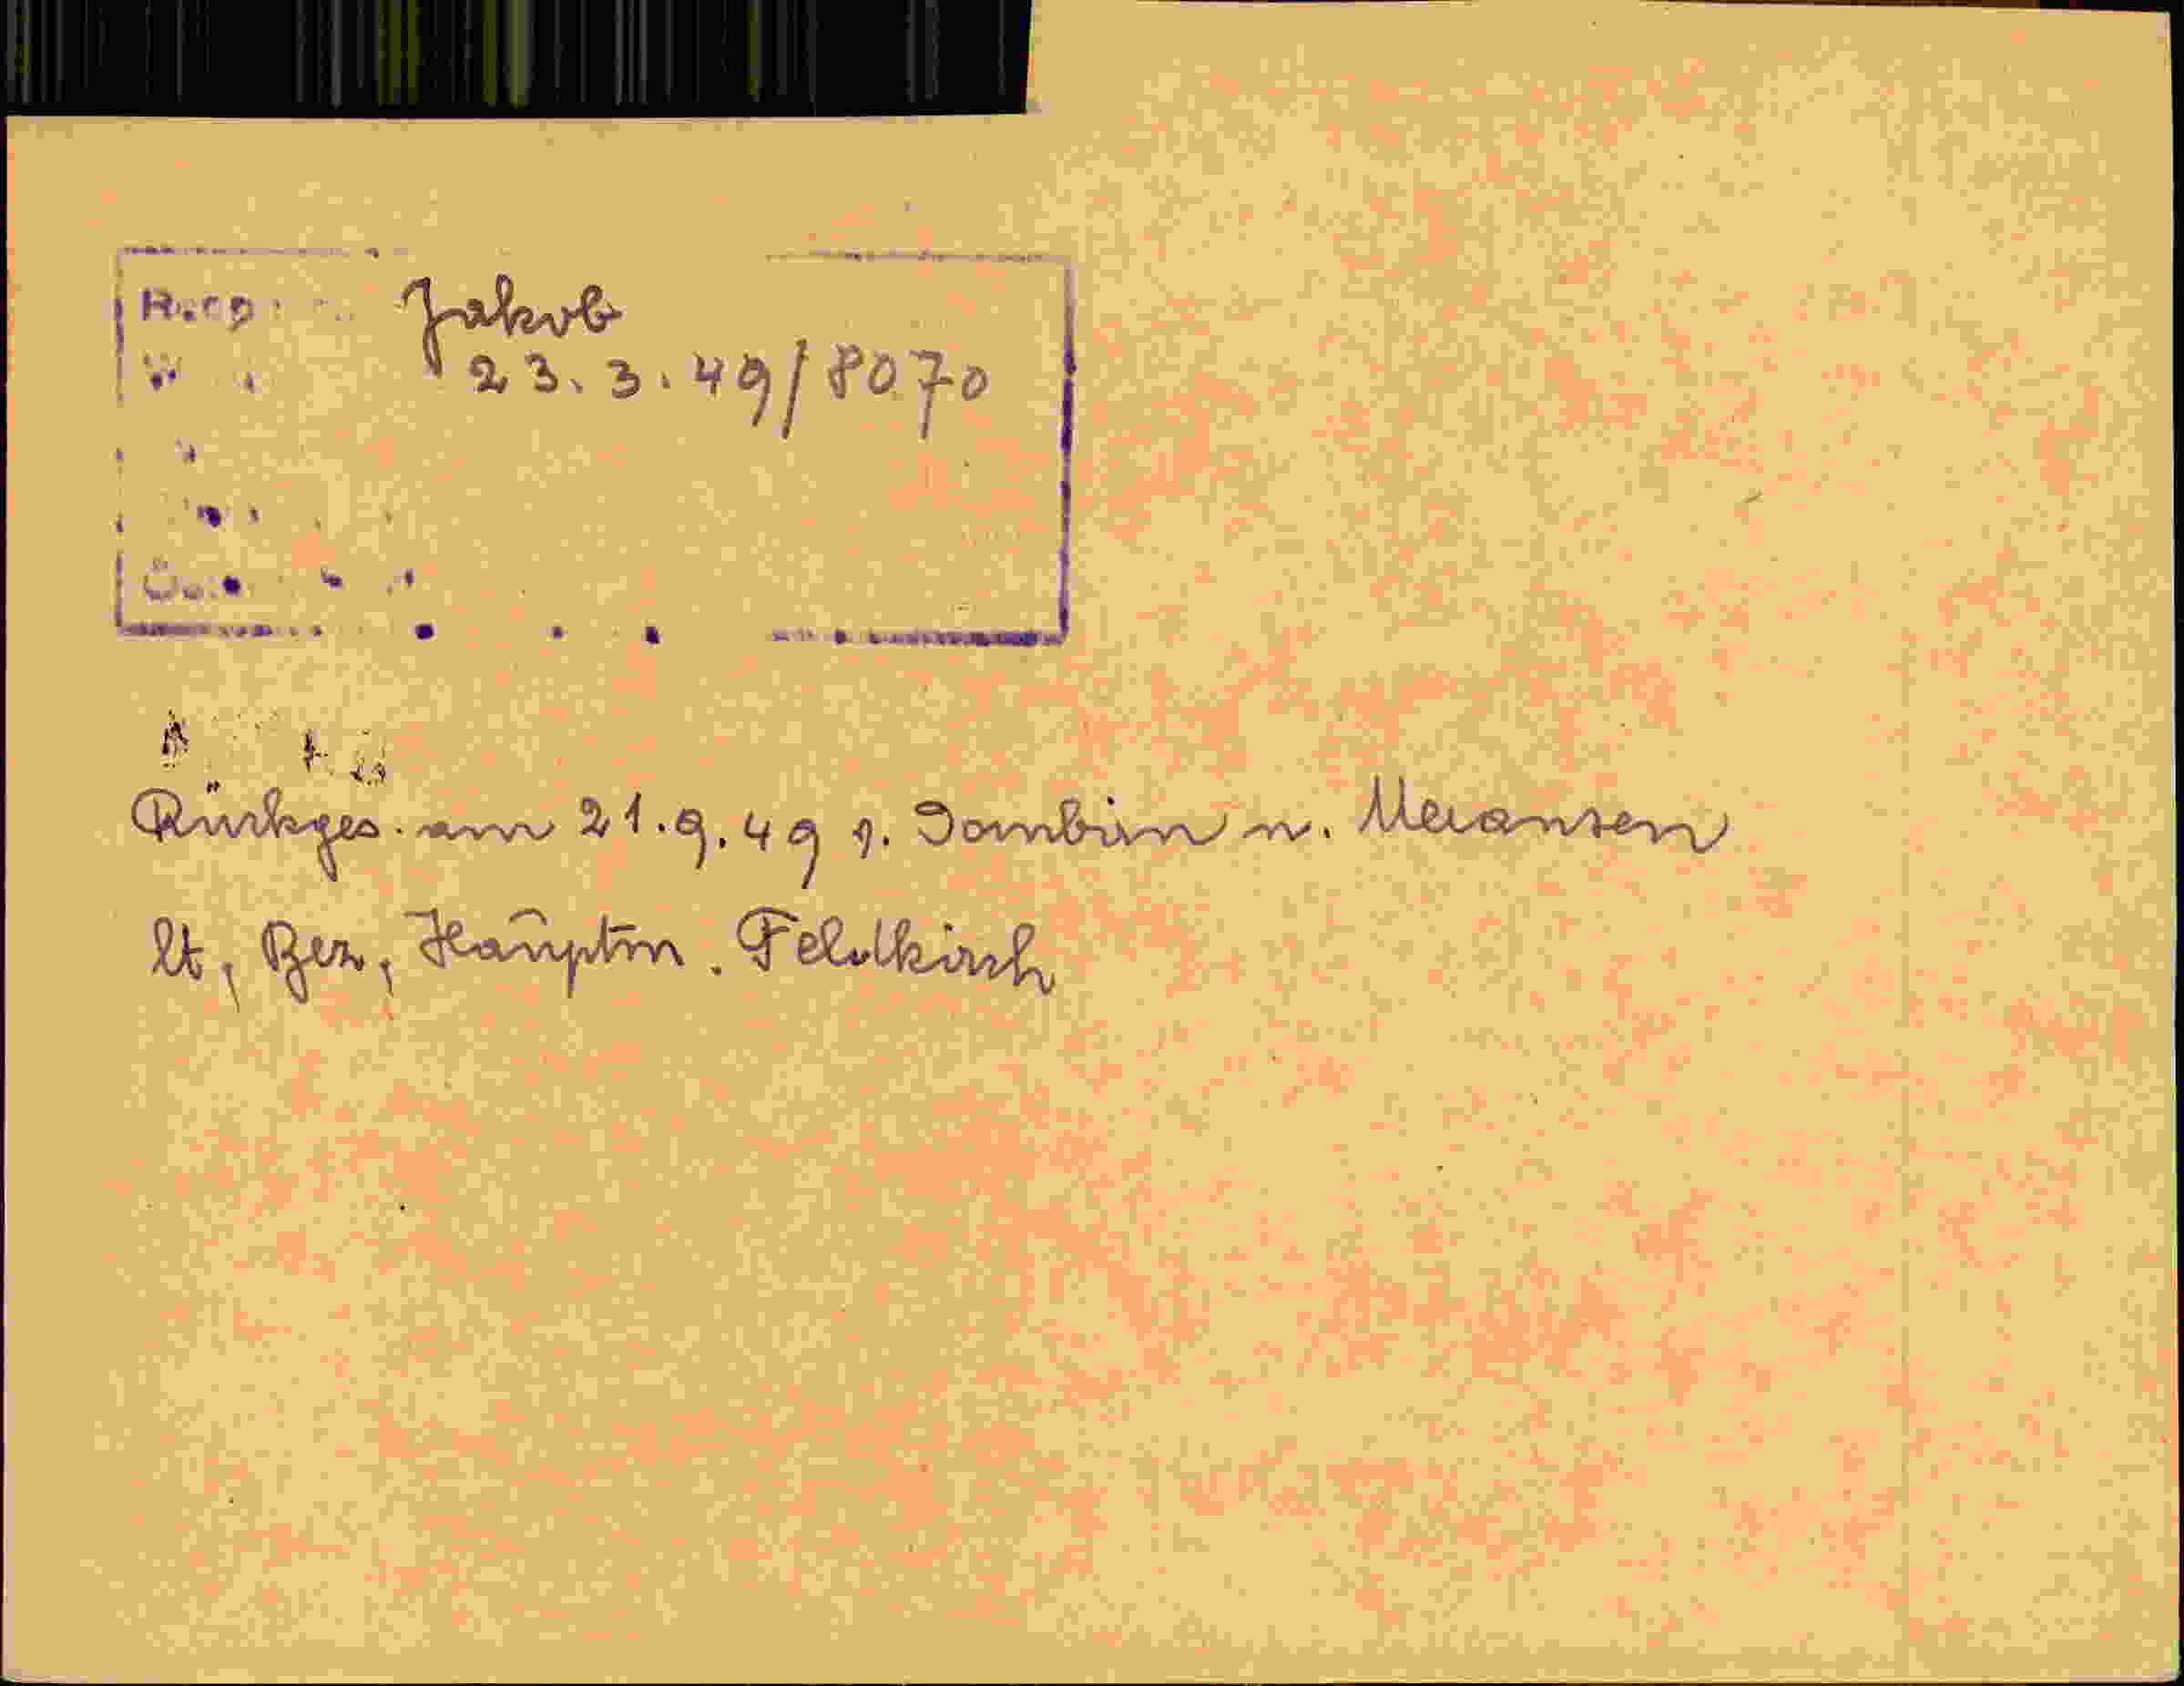 Jakob
23.3.49/8070
Rückges. am 21.9.49 v. Dornbirn n. Meransen
lt. Bez. Hauptm. Feldkirch